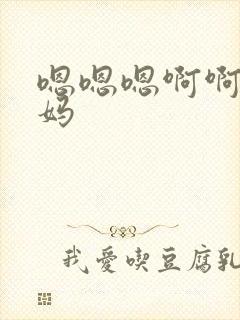 嗯嗯嗯啊啊
妈
我爱喫豆腐乳